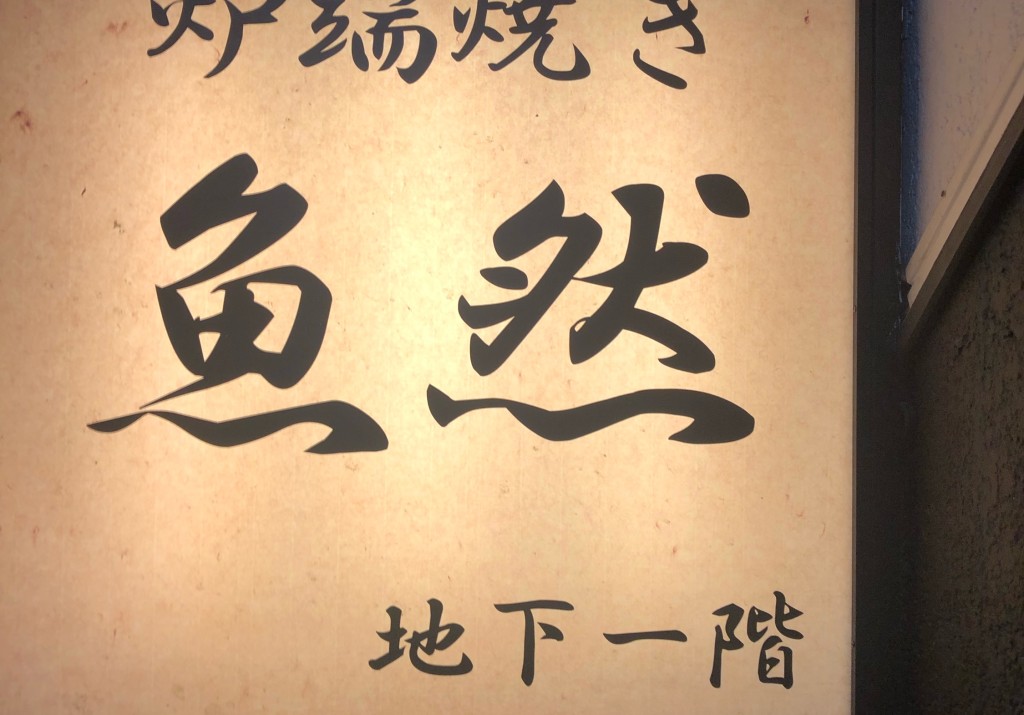 炉端焼き
魚然
地下一階